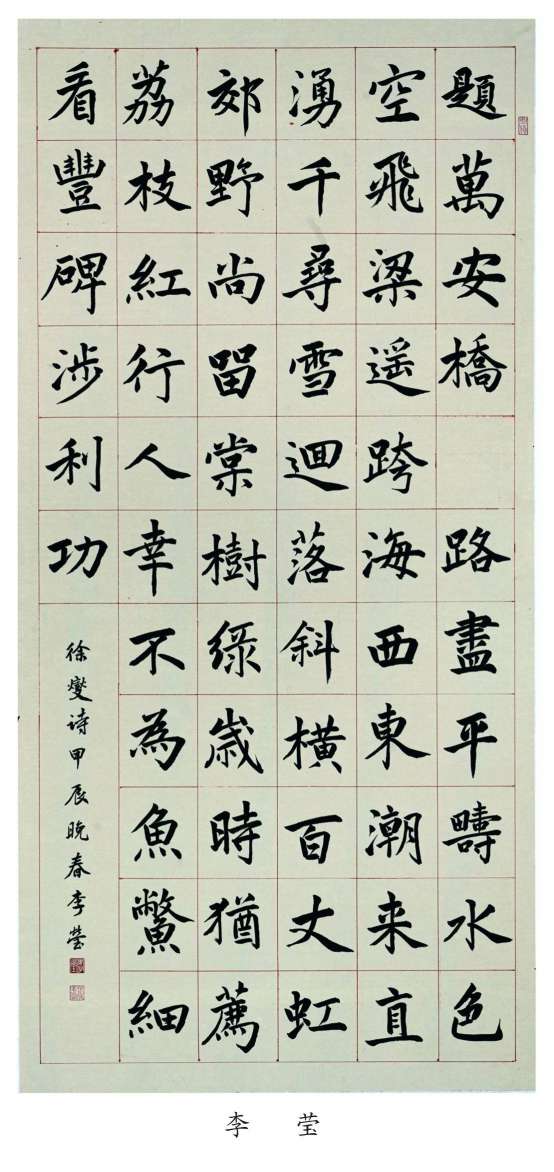 題萬安橋 路盡平疇水色
空飛梁遥跨海西東潮来直
湧千尋雪迴落斜橫百丈虹
郊野尚留棠樹綠歲時猶薦
荔枝紅行人幸不為魚鱉細
看豐碑涉利功
徐燮诗甲辰晚春李莹
李莹